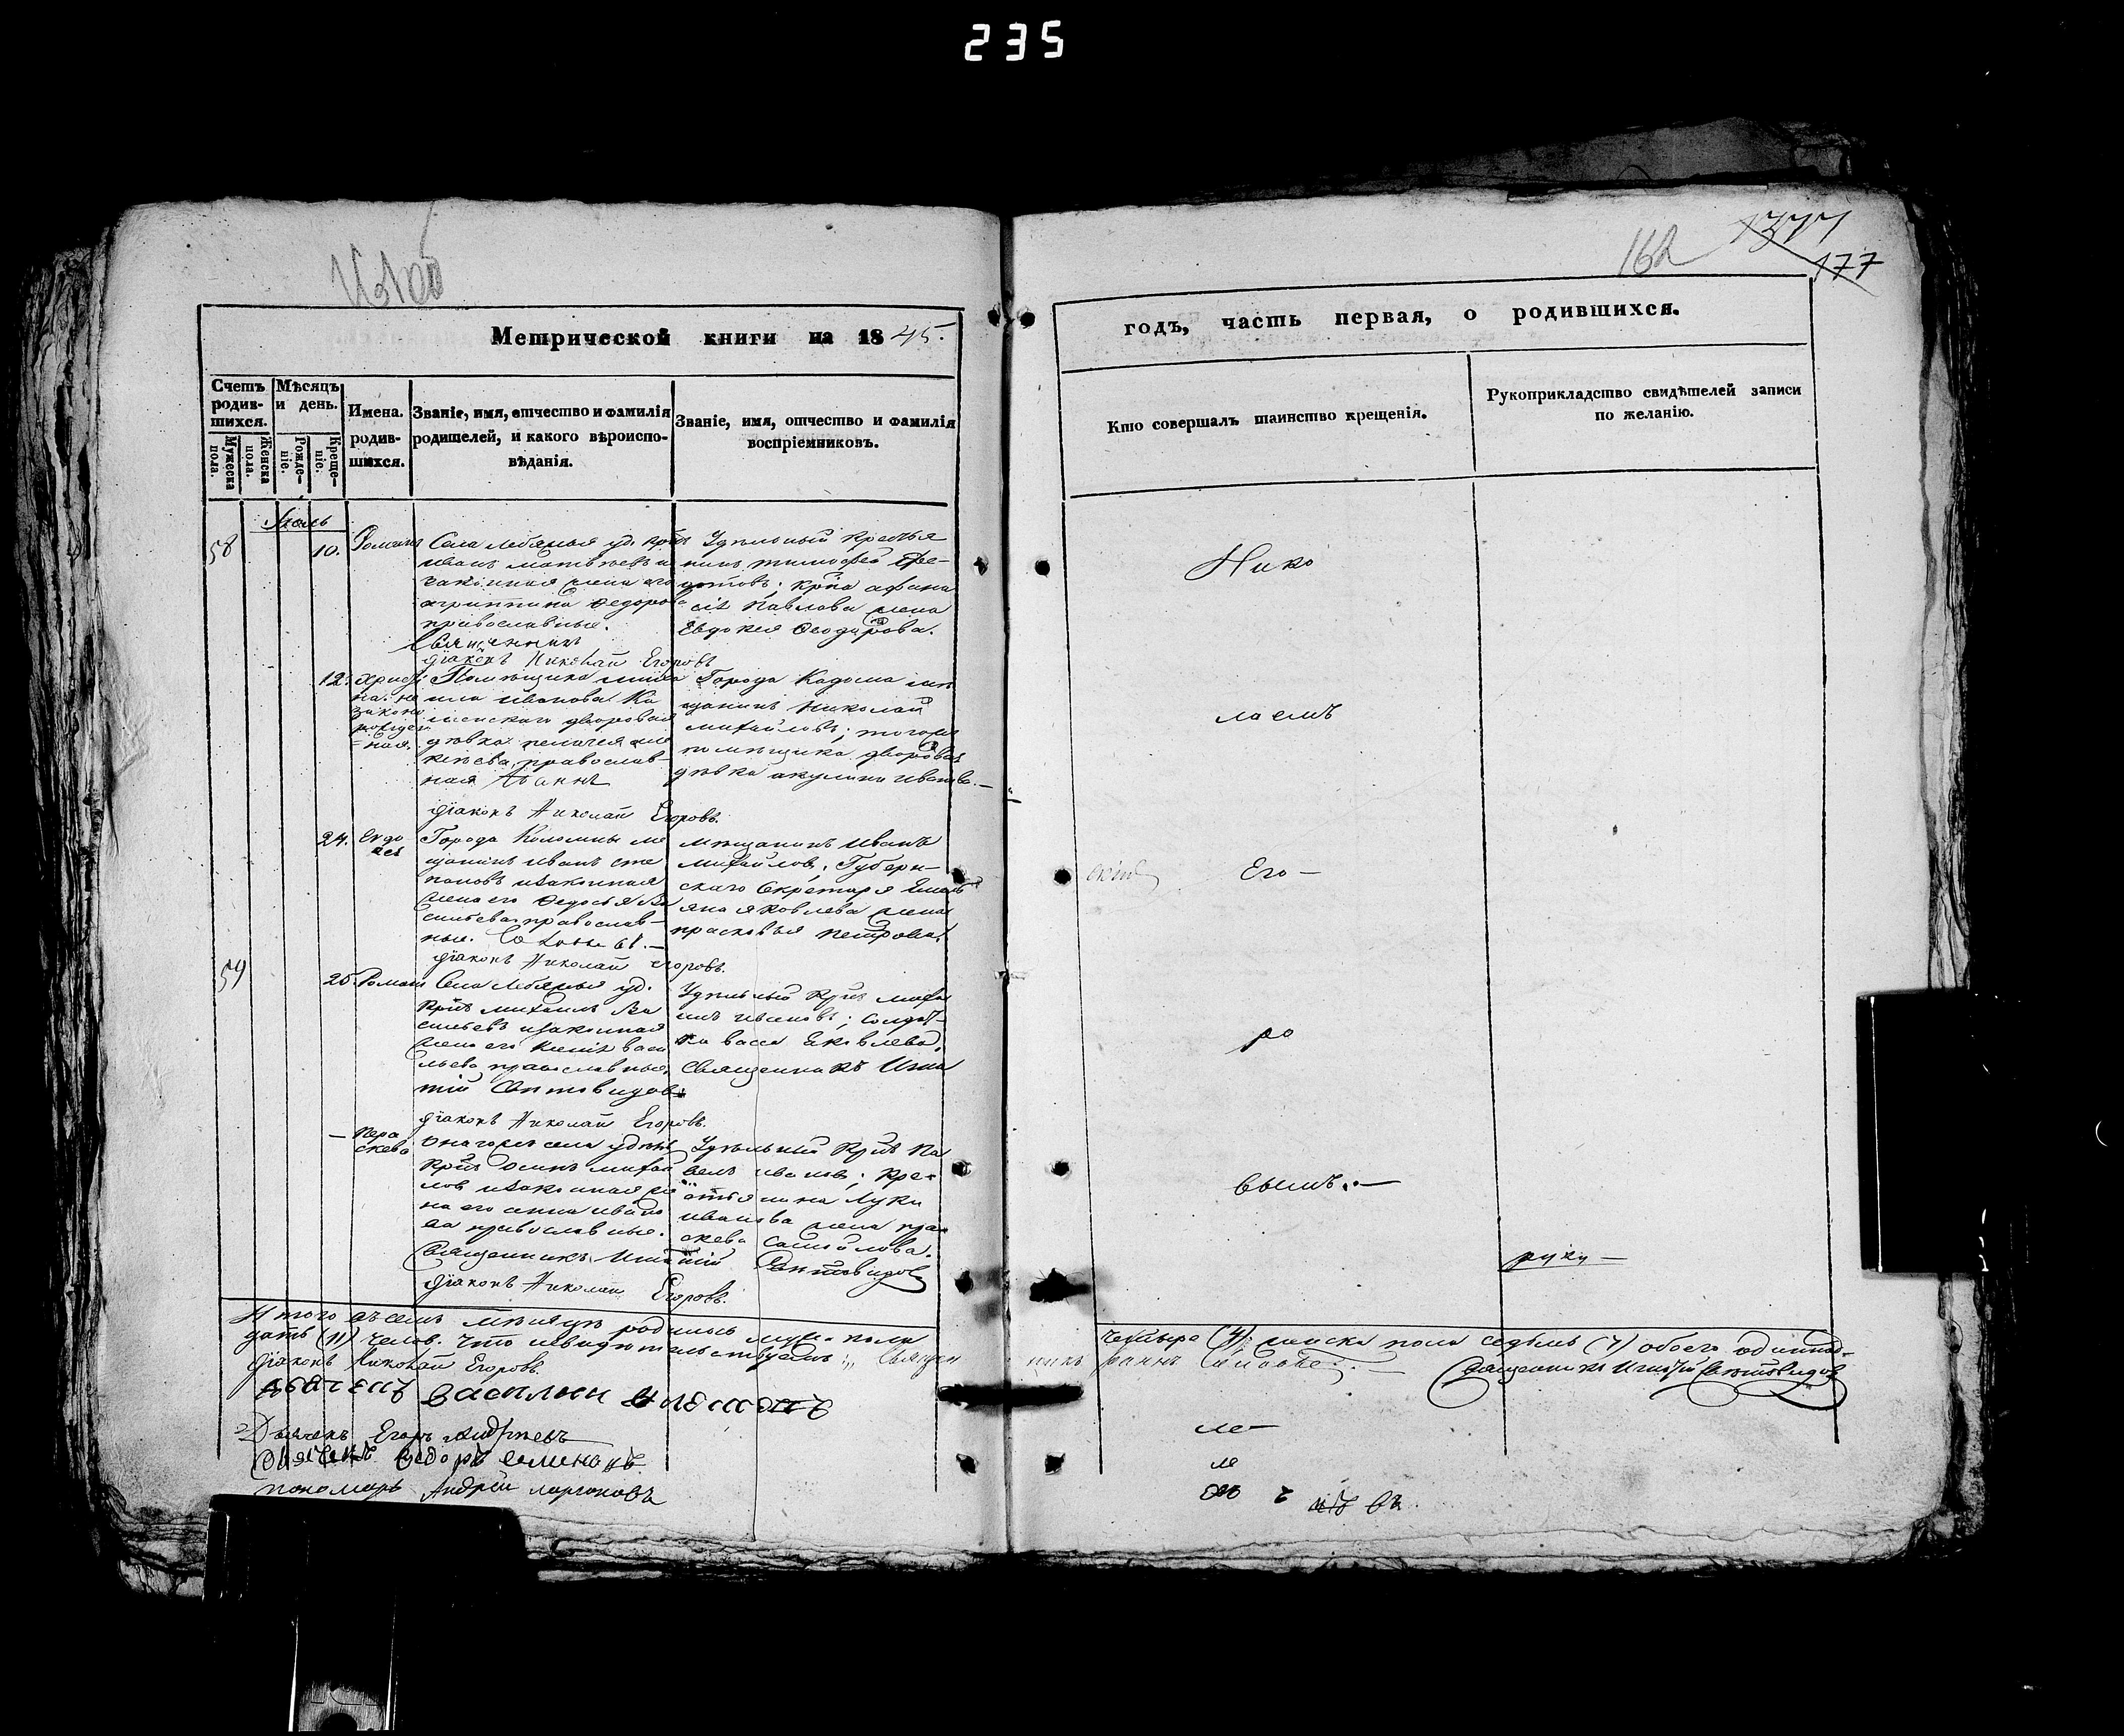 235
162
1377
177
Метрической книги на 1845.
годъ, часть первая, о родившихся.
Счетъ родив-шихся.
Мужеска пола.
Женска пола.
Мѣсяцъ и день.
Рожде-ніе.
Креще-ніе.
Имена. родив-шихся.
Званіе, имя, отчество и фамилія
родителей, и какого вѣроиспо-
вѣданія.
Званіе, имя, отчество и фамилія
воспріемниковъ.
Кто совершалъ таинство крещенія.
Рукоприкладство свидѣтелей записи
по желанію.
58
10.
Романъ
Села Лебяжья уд. крнъ
Иванъ Матвѣевъ и
законная жена его
агриппина Федорова
православные.
Удѣльный крестья
нинъ тимофей Фе-
дотовъ; крна афана
сія Павлова жена
Евдокея Феодорова.
Священникъ
діаконъ Николай Егоровъ
12.
незаконо
рожден
=ная.
Помѣщика
ила иванова Ка
менскаго дворовая
дѣвка пелагея але
ксѣева, православ-
ная
Города Кадома мѣ
щанинъ Николай
михайловъ; тогоже
помѣщика дворовая
дѣвка акулина иванова.
діаконъ Николай Егоровъ.
24.
Евдо
кея
Города Коломны мѣ
щанинъ Иванъ сте
пановъ изаконная
жена его Федосья Ва
сильева православ-
ные.
мѣщанинъ Иванъ
михайловъ; Губерн-
скаго Секретаря Емель
яна яковлева жена
прасковья петрова.
діаконъ Николай Егоровъ.
59
25.
Романъ
Села Лебяжья уд.
крнъ михаилъ Ва
сильевъ изаконная
жена его Ксенія васи
льева православные,
Удѣльный крнъ михаи
илъ ивановъ; солдат-
ка васса Яковлева.
Священникъ Игна
тій Святовидовъ
діаконъ Николай Егоровъ.
Пара
скева
Онагожъ села удѣльн
крнъ Осипъ михай
ловъ изаконная же
на его анна ивано
ва православные.
Удѣльный крнъ Па
велъ ивановъ; кре-
стьянина Луки
иванова жена пра
скева Самойлова.
Священникъ Игнатій Святовидовъ
діаконъ Николай Егоровъ.
Нико
лаемъ
Его-
ро
вымъ.-
руку-
Итого въ семъ мѣсяцѣ родилось муж. пола четыре (4), женска пола седьмь (7) обоего одиннад-
дать (11) челов. Что и свидѣтельствуемъ: Священникъ
Священникъ Игнатій Святовидовъ
діаконъ Николай Егоровъ.
дьячекъ василий
Дьячекъ Егоръ Андреевъ
дьячекъ Федоръ семеновъ.
пономарь Андрей